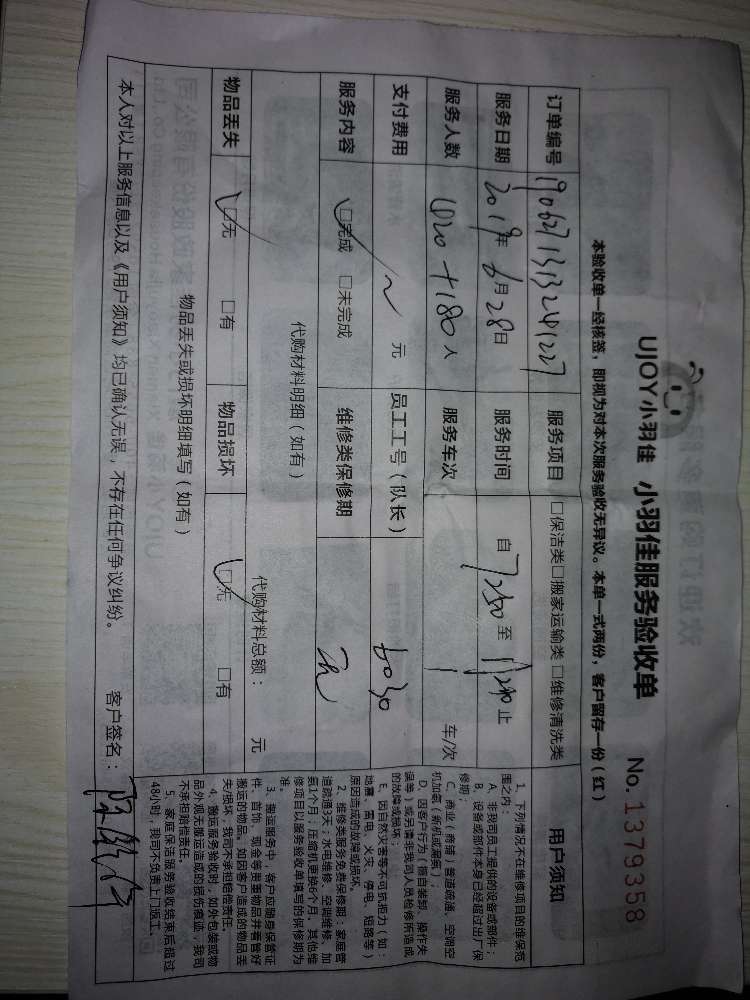 UJOY小羽佳 小羽佳服务验收单 No.1379358
本验收单一经核签，即视为对本次服务验收无异议。本单一式两份，客户留存一份（红）
订单编号 服务项目 □保洁类□搬家运输类□维修清洗类
服务日期 2019年6月28日 服务时间 自 至 止
服务人数 1020+180人 服务车次 1 车/次
支付费用 ~ 元 员工工号（队长） 6030
服务内容 □完成 □未完成 维修类保修期
代购材料明细（如有） 代购材料总额： 元
物品丢失 □无 □有 物品损坏 □无 □有
物品丢失或损坏明细填写（如有）
本人对以上服务信息以及《用户须知》均已确认无误，不存在任何争议纠纷。 客户签名：
用户须知
1、下列情况不在维修项目的维保范
围之内：
A、非我司员工提供的设备或部件；
B、设备或部件本身已经超过出厂保
修期；
C、商业（商铺）管道疏通、空调空
机加氨（新机或漏氨）；
D、因客户行为（擅自装卸、操作失
误等）或另请非我司人员检修所造成
的故障或损坏；
E、因自然灾害等不可抗拒力（如：
地震、雷电、火灾、停电、短路等）
原因造成的故障或损坏。
2、维修类服务免费保修期：家庭管
道疏通3天；水电维修、空调维修、加
氨1个月；压缩机更换6个月，其他维
修项目以服务验收单填写的保修期为
准。
3、搬运服务中，客户应随身保管证
件、首饰、现金等贵重物品并看管好
搬运的物品。如因客户造成的物品丢
失/损坏，我司不承担赔偿责任。
4、搬运服务验收时，如外包装或物
品外观无搬运造成的损伤痕迹，我司
不承担赔偿责任
5、家庭保洁服务验收结束后超过
48小时，我司不负责上门返工。